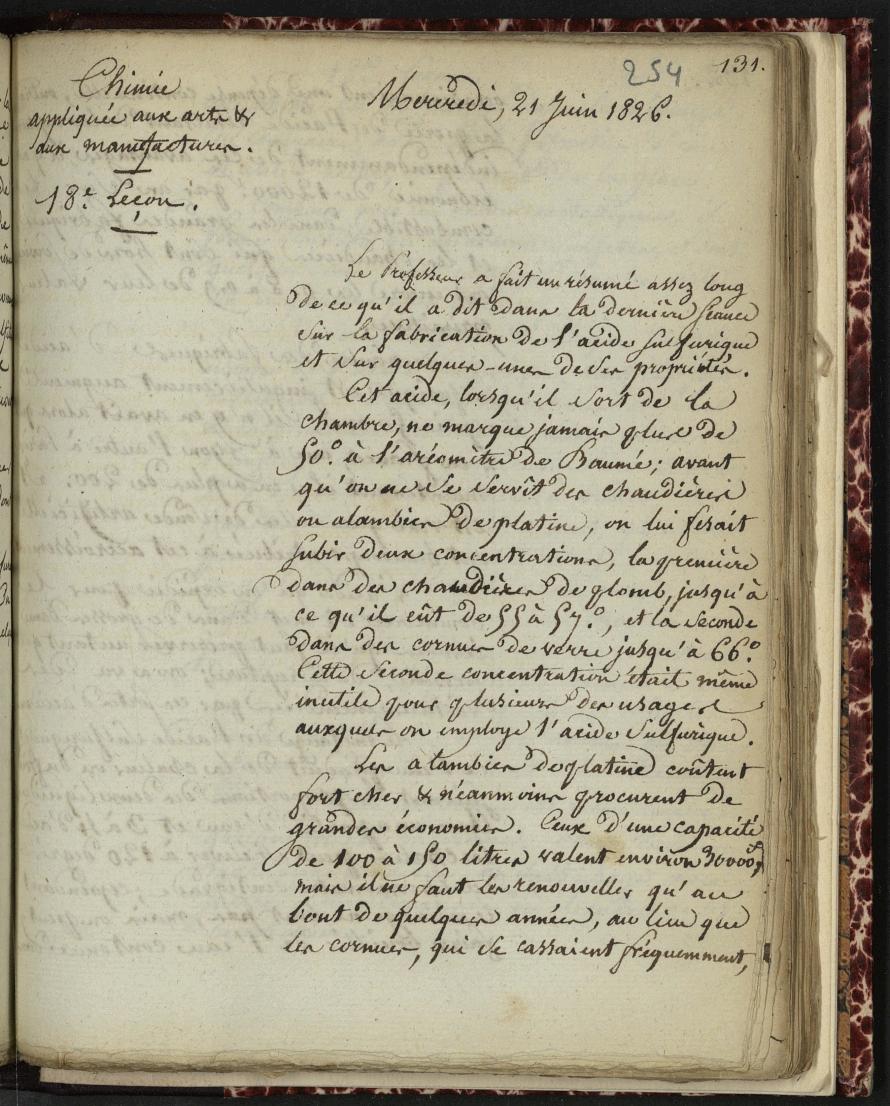 254
131.
Chimie
appliquée aux arts &
aux manufactures.
18.e Leçon.
Mercredi, 21 Juin 1826.
Le Professeur a fait un résumé assez long
de ce qu'il a dit dans la dernière séance
sur la fabrication de l'acide sulfurique
et sur quelques-unes de ses propriétés.
Cet acide, lorsqu'il sort de la
chambre, ne marque jamais plus de
50.° à l'aréomètre de Baumé; avant
qu'on ne se servît des chaudières
ou alambics de platine, on lui fesait
subir deux concentrations, la première
dans des chaudières de plomb, jusqu'à
ce qu'il eût de 55 à 57.°, et la seconde
dans des cornues de verre jusqu'à 66.°
Cette seconde concentration était même
inutile pour plusieurs des usages
auxquels on employe l'acide sulfurique.
Les alambics de platine coûtent
fort cher & néanmoins procurent de
grandes économies. Ceux d'une capacité
de 100 à 150 litres valent environ 30000f,
mais il ne faut les renouveller qu'au
bout de quelques années, au lieu que
les cornues, qui se cassaient fréquemment,